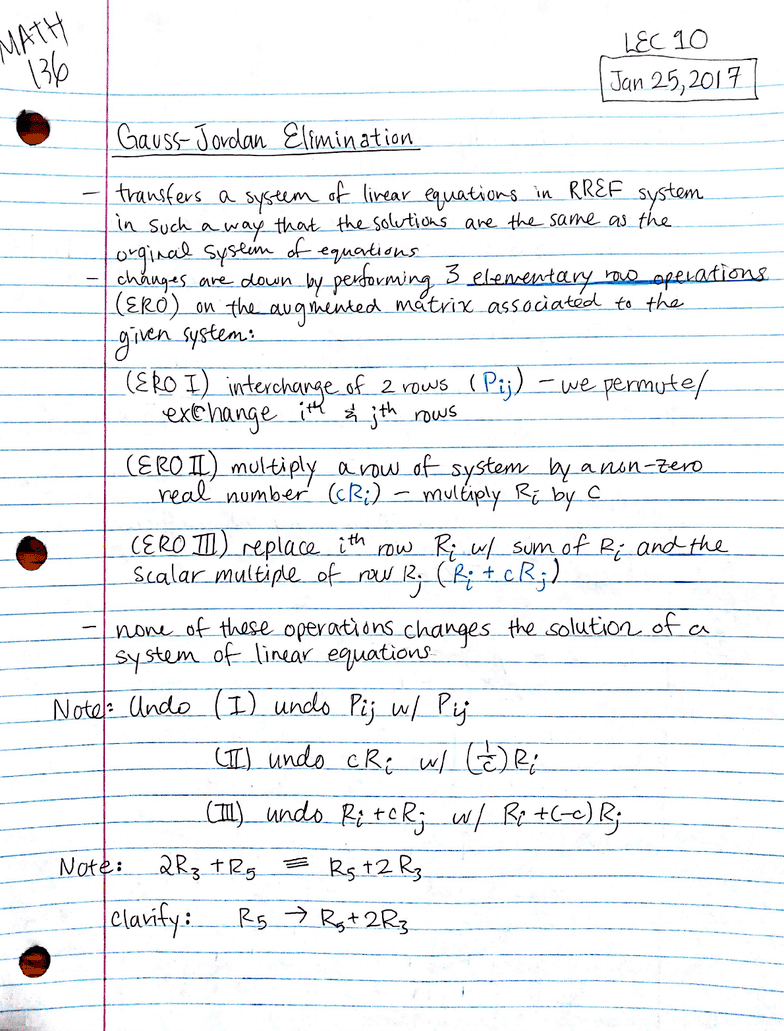 MATH
136
LEC 10
Jan 25, 2017
Gauss-Jordan Elimination
- transfers a system of linear equations in RREF system
in such a way that the solutions are the same as the
orginal system of equations
- changes are down by performing 3 elementary row operations
(ERO) on the augmented matrix associated to the
given system:
(ERO I) interchange of 2 rows (Pij) - we permute/
exchange ith & jth rows
(ERO II) multiply a row of system by a non-zero
real number (cRi) - multiply Ri by c
(ERO III) replace ith row Ri w/ sum of Ri and the
scalar multiple of row Rj (Ri + cRj)
- none of these operations changes the solution of a
system of linear equations
Note: Undo (I) undo Pij w/ Pij
(II) undo cRi w/ (1/c)Ri
(III) undo Ri + cRj w/ Ri + (-c) Rj
Note: 2R3 + R5 ≡ R5 + 2R3
clarify: R5 → R5 + 2R3